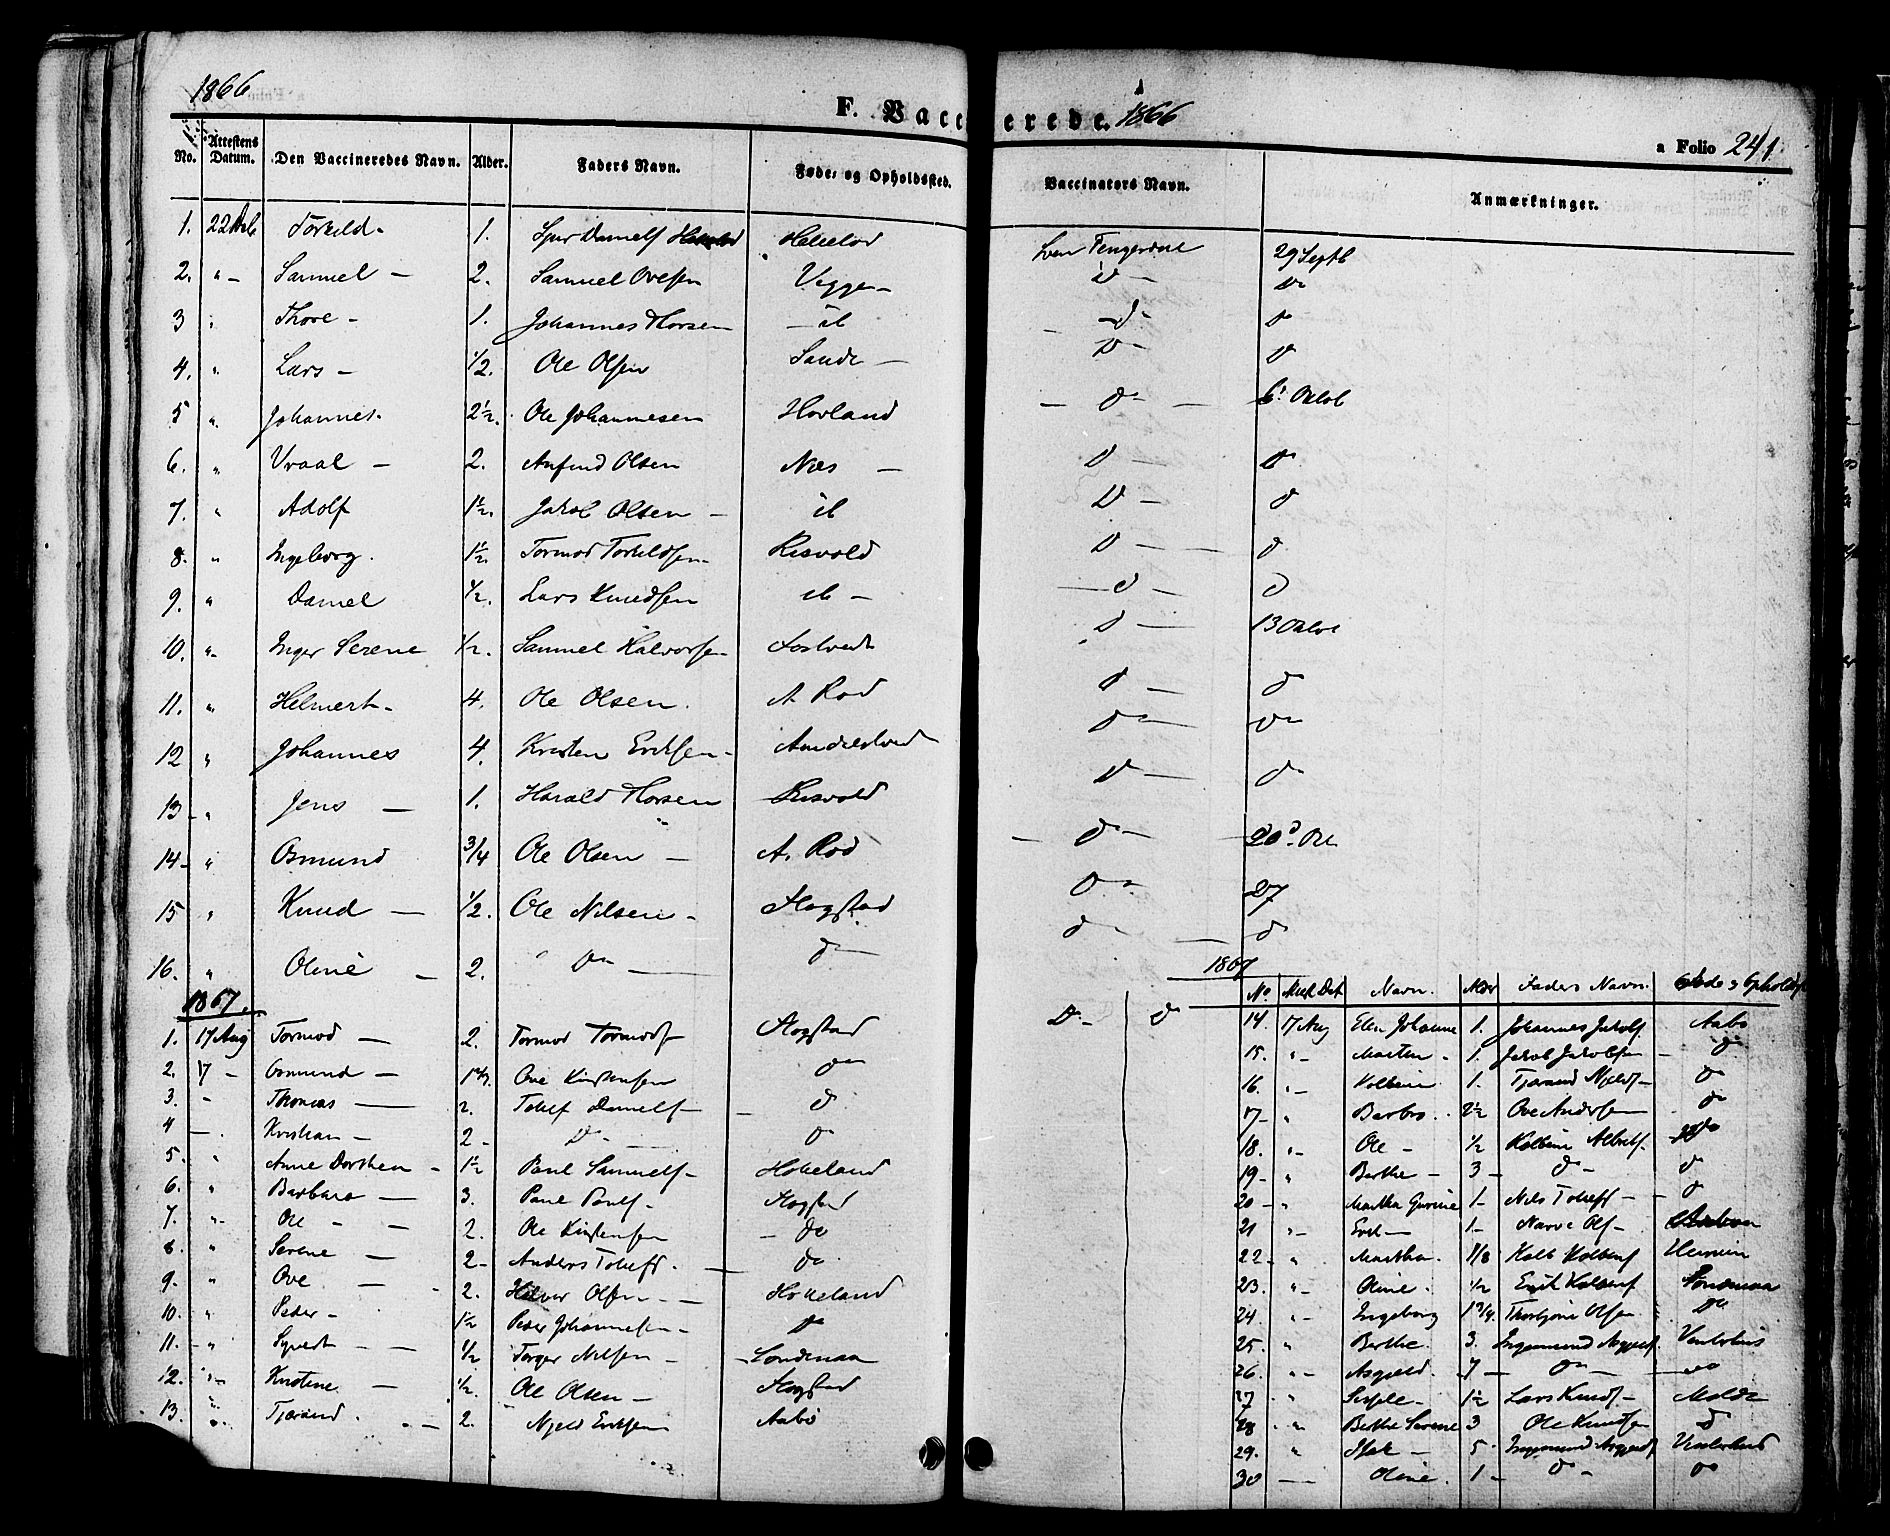 1866
F. Vaccinerede. 1866
a Folio 241
No. Attestens Datum. Den Vaccineredes Navn. Alder. Faders Navn. Føde- og Opholdssted. Vaccinators Navn. Anmærkninger.
1. 22 Torkild 1. Daniels 29 Septb
2. " Samuel 2. Samuel Ovesen Vigge D D
3 " Thore 1. Johannes Thorsen D D
4. " Lars 1/2. Ole Olsen Sande D D
5 " Johannes 2 1/2. Ole Johannesen Hovland D 6 Oktob
6. " Vraal 2. Anfind Olsen Næs D D
7. " Adolf 1 1/2. Jakob Olsen D D
8. " Ingeborg 1 1/2. Tormod Torkildsen Risvold D D
9. " Daniel 1/2. Lars Knudsen D D
10. " Inger Serene 1/2. Samuel Halvorsen Fostvedt D 13 Oktob
11. " Helmert 4. Ole Olsen A. Rød D D
12 " Johannes 4. Kristen Eriksen D D
13 " Jens 1. Harald Thorsen Risvold D D
14 " Osmund 3/4 Ole Olsen A. Rød D 20
15 " Knud 1/2. Ole Nilsen Hogstad D 27
16. " Oline 2. Do Do D D
1867
1. 17 Aug Tormod 2. Tormod Tormods Hogstad D D
2. 17 Osmund Ove Kristensen Do
3. Thomas 2. Tolief Daniels D
4 Kristian 2 D D
5. " Anne Dorthea 1 1/2 Paul Samuels Hokeland
6. " Barbara 3. Paul Pauls Hogstad
7. " Ole 2. Ole Kristensen Do
8. " Serene 2 Anders Toliefs Do
9. " Ove 2. Halvor Olsen Hokeland
10. " Peder 1 1/2 Peder Johannesen Do
11. " Syvert 1/2 Torger Nilsen Londenaa
12. Kristine 1/2. Ole Olsen Hogstad
13. Tjerand 2. Njeld Eriksen Aabø
1867
No Navn. Alder Faders Navn.
14. 17 Aug Elen Johanne 1. Johannes Jakobs Aabø
15. " Marten 1. Jakob Jakobsen D
16. " Kolbein 1. Tjerand Njelds D
17 " Barbro 2 1/2 Ove Andersen D
18. " Ole 1/2 Kolbein Do
19 " Berthe 3 D D
20 " Martha Gurine 1 Nils Toliefs D
21 " 1 Narve Ols
22 " Martha. Kolb
23. " Oline 1/2 Erik Londenaa
24. " Ingeborg 1 3/4. Thorbjørn Olsen Do
25. " Berthe. 3. Ingemund
26. " Asgjeld. 7 Do Do
27 " 1 1/2 Lars Knuds Molde
28 " Berthe Serene 3 Ole Knudsen D
29. " Isak 5 Ingemund
30 Oline 1 D Do